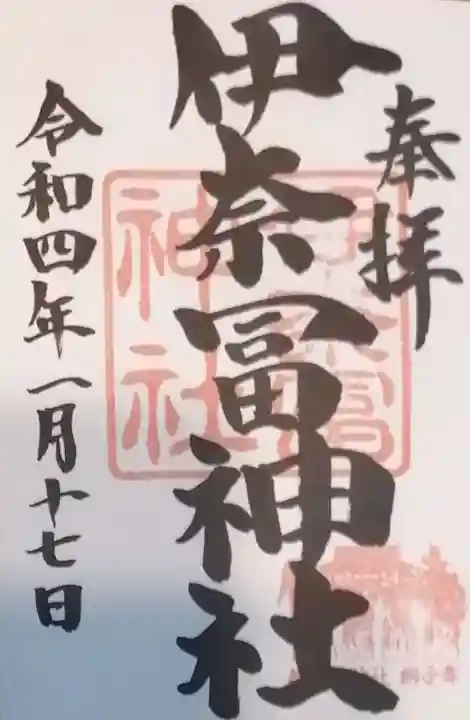 奉拝
伊奈冨神社
令和四年一月十七日
神社
社 獅子舞